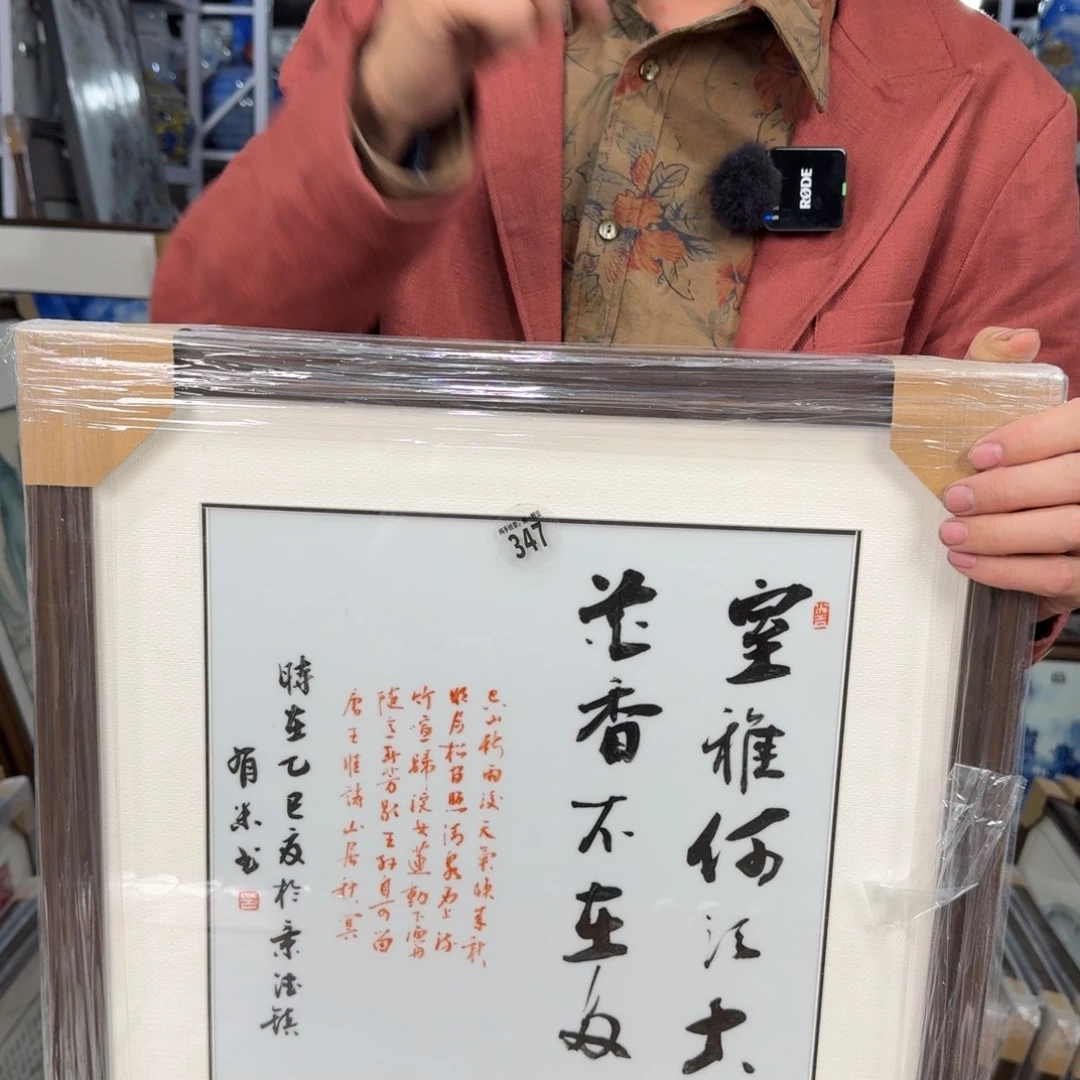 RØDE
347
室雅何须大
花香不在多
空山新雨後天氣晚來秋
明月松間照清泉石上流
竹喧歸浣女蓮動下漁舟
隨意春芳歇王孫自可留
唐王維詩山居秋暝
時在乙巳夏於景德鎮
有米书